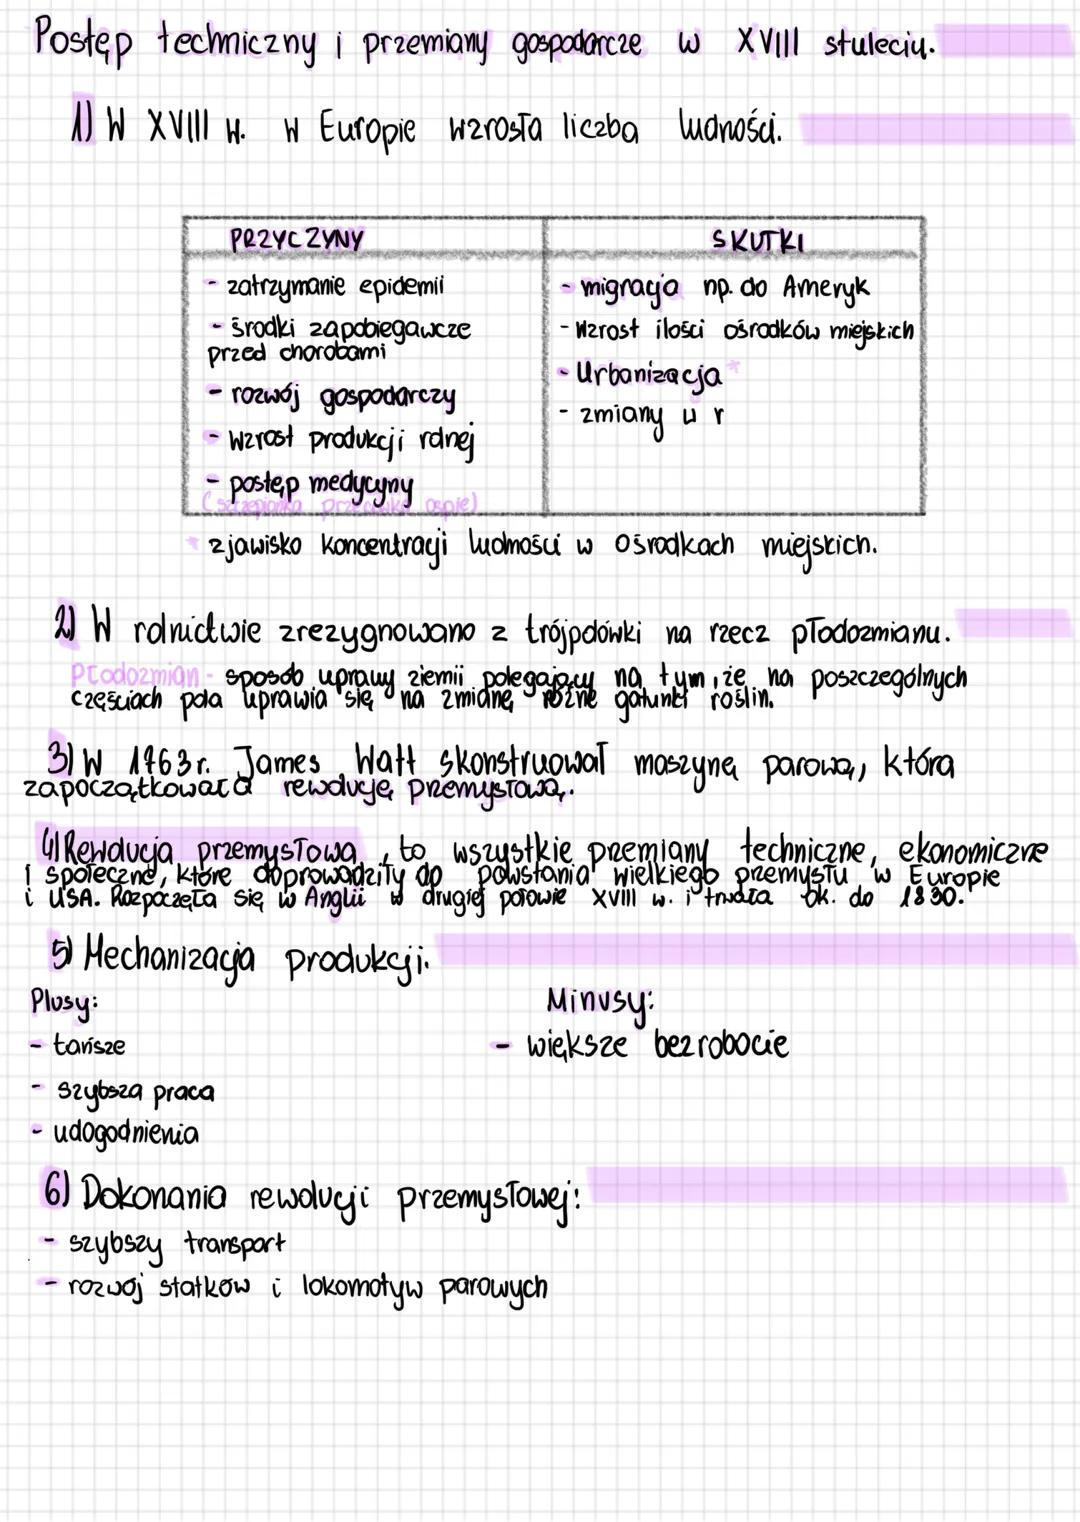 Postęp techniczny i przemiany gospodarcze w XVIII stuleciu.
1) W XVIII w. w Europie wzrosła liczba ludności.
PRZYCZYNY
- zatrzymanie epidemii
- środki zapobiegawcze
przed chorobami
- rozwój gospodarczy
- wzrost produkcji rolnej
- postęp medycyny
(szczepionka przeciwko ospie)
SKUTKI
- migracja np. do Ameryk
- wzrost ilości ośrodków miejskich
- Urbanizacja *
- zmiany w r
* zjawisko koncentracji ludności w ośrodkach miejskich.
2) W rolnictwie zrezygnowano z trójpolówki na rzecz płodozmianu.
Płodozmian - sposób uprawy ziemii polegający na tym, że na poszczególnych
częściach pola uprawia się na zmianę różne gatunki roślin.
3) W 1763 r. James Watt skonstruował maszynę parową, która
zapoczątkowała rewolucję przemysłową.
4) Rewolucja przemysłowa, to wszystkie przemiany techniczne, ekonomiczne
i społeczne, które doprowadziły do powstania wielkiego przemysłu w Europie
i USA. Rozpoczęła się w Anglii w drugiej połowie XVIII w. i trwała ok. do 1830.
5) Mechanizacja produkcji.
Plusy:
- tańsze
- szybsza praca
- udogodnienia
Minusy:
- większe bezrobocie
6) Dokonania rewolucji przemysłowej:
- szybszy transport
- rozwój statków i lokomotyw parowych